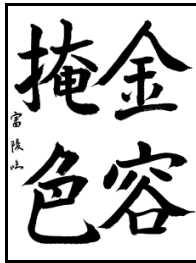 金容
掩色
富陵